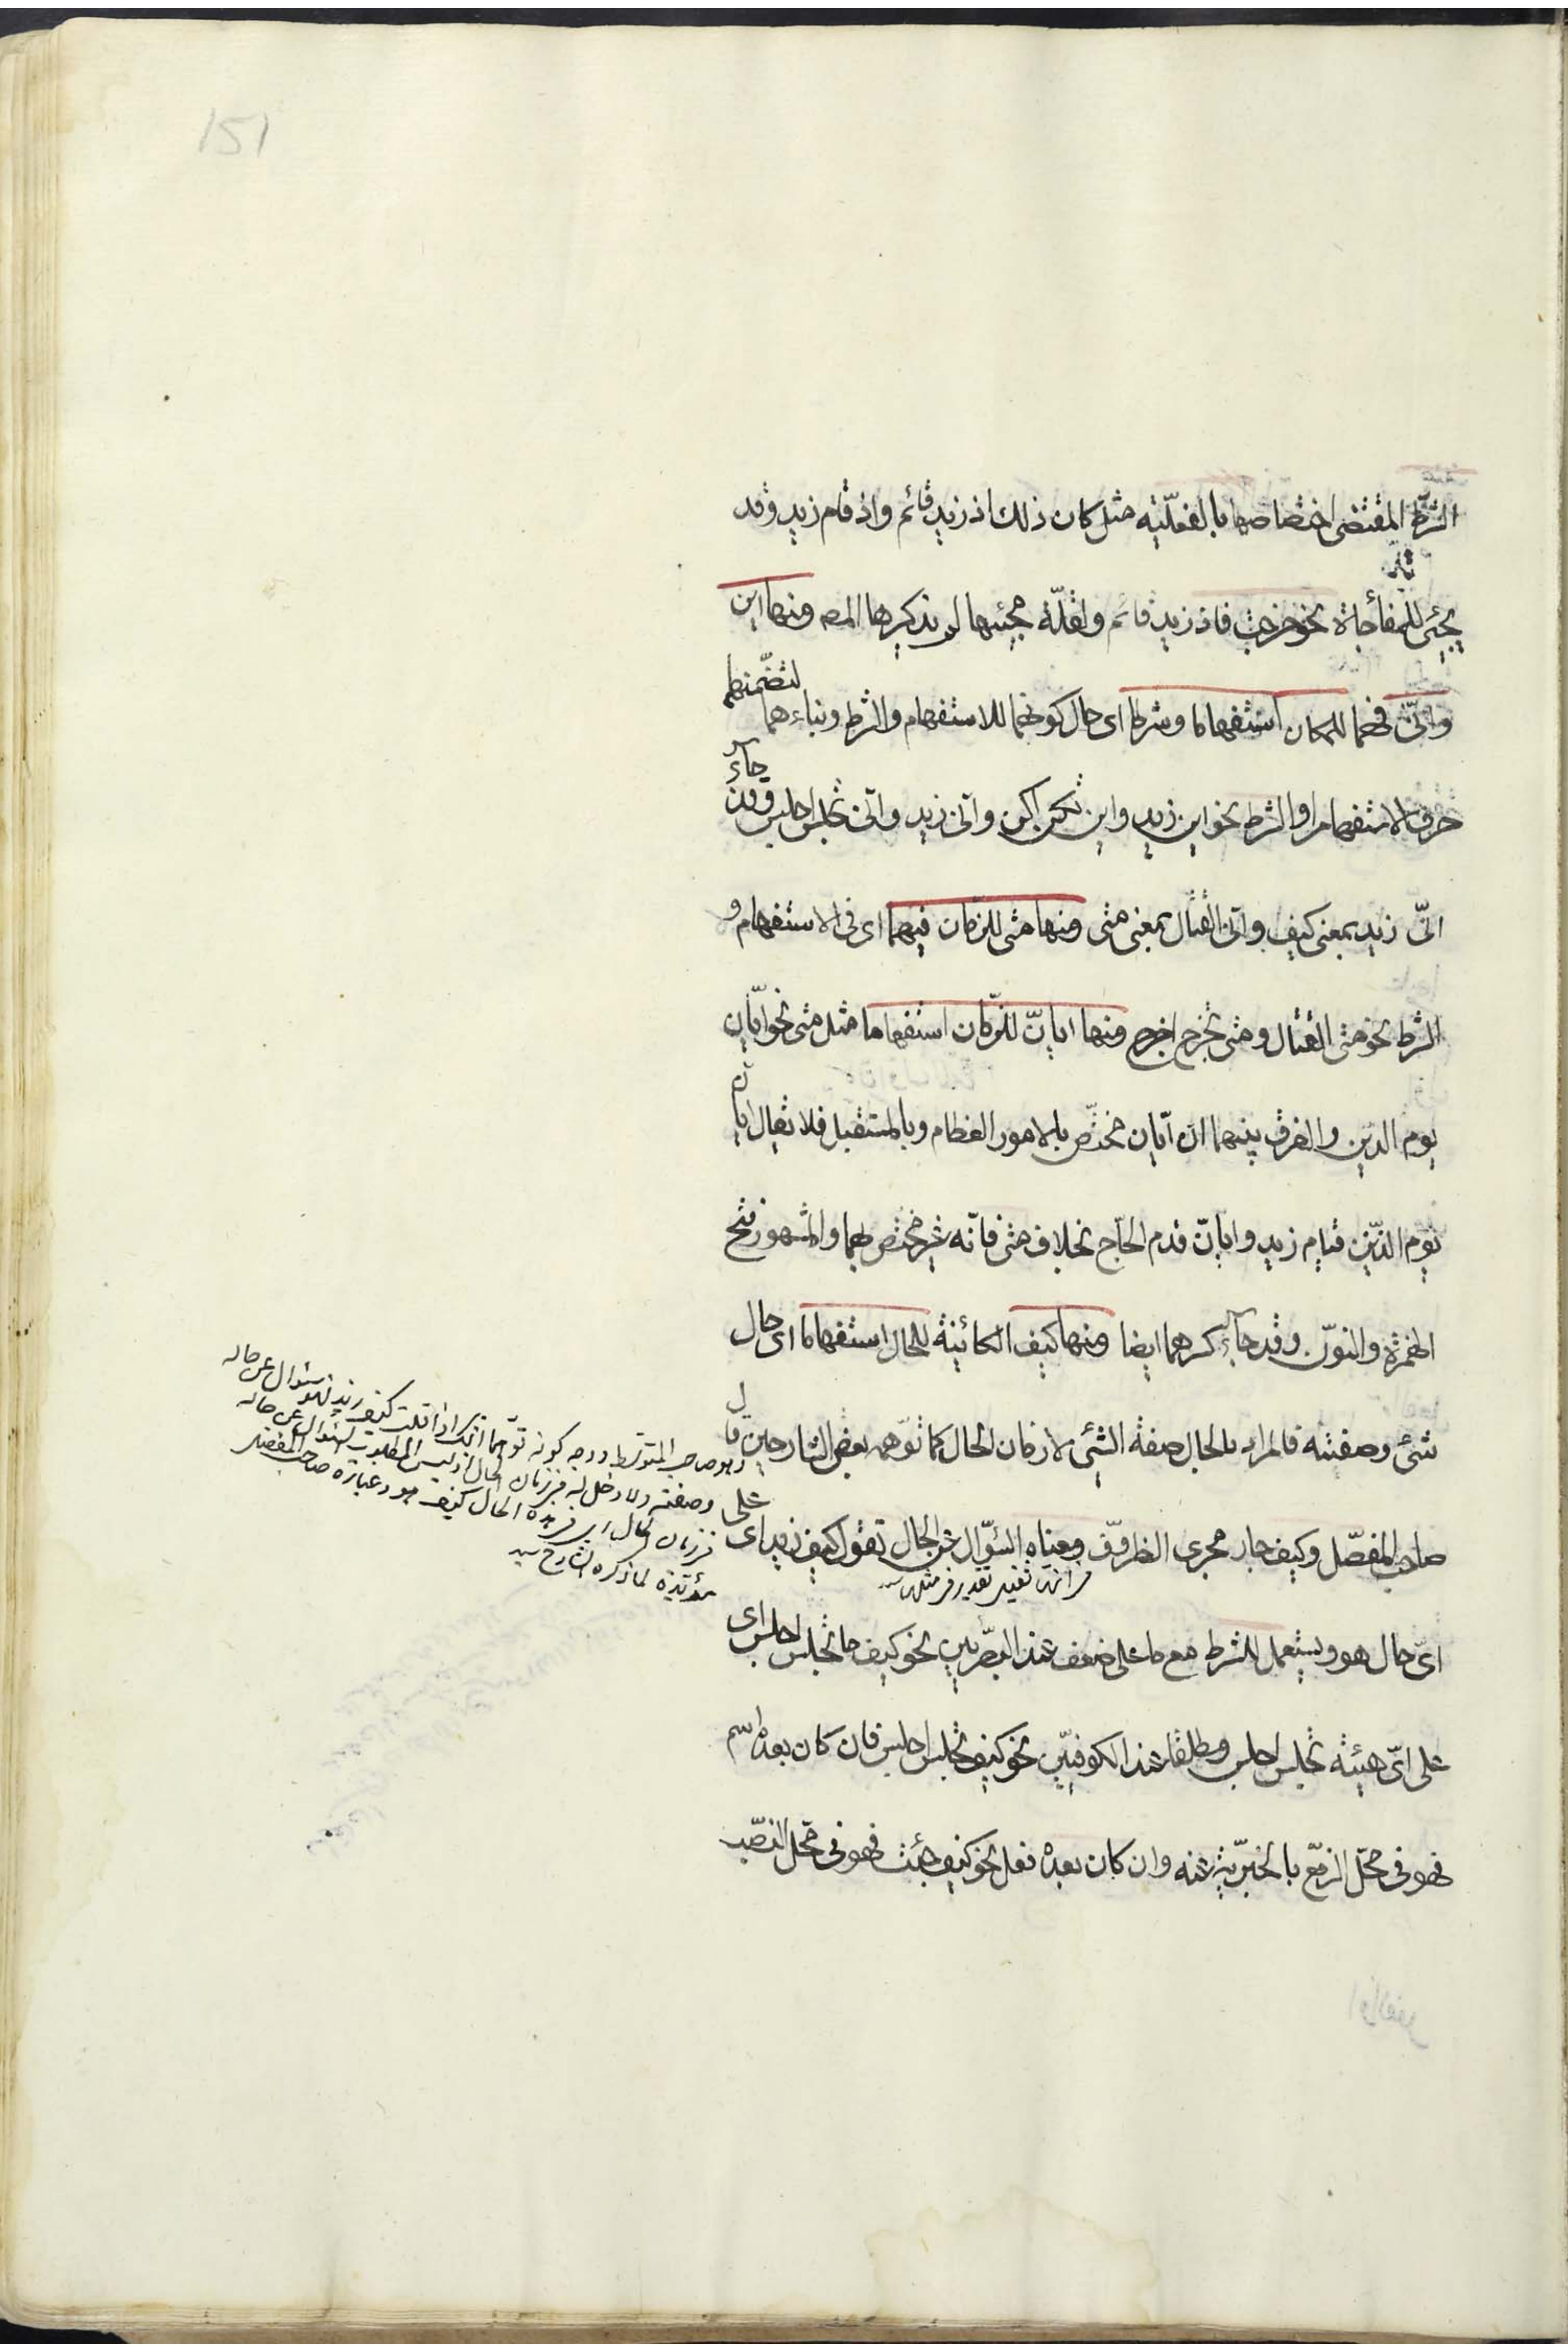 151
الشرط المقتضى اختصاصها بالفعليّة مثل كان ذلك اذ زيد قائم واذ قام زيد وقد
يجئ للمفاجاة نحو خرجت فاذ زيد قائم ولقلّة مجيئها لم يذكرها المصـ ومنها اين
وانّى فهما للمكان استفهاما وشرطا اى حال كونهما للاستفهام والشرط وبناءهما لتضمنهما
حرف الاستفهام او الشرط نحو اين زيد واين تكن اكن وانى زيد وانى تجلس اجلس وقد جاء
انّى زيد بمعنى كيف وانى القتال بمعنى متى ومنها متى للزمان فيهما اى فى الاستفهام و
الشرط نحو متى القتال ومتى تخرج اخرج ومنها ايان للزمان استفهاما مثل متى نحو ايان
يوم الدين والفرق بينهما ان ايان مختص بالامور العظام وبالمستقبل فلا يقال ايان
يوم الدين قيام زيد وايان قدم الحاج بخلاف متى فانه غير مختص بهما والمشهور فتح
الهمزة والنون وقد جاء كسرهما ايضا ومنها كيف الكائينة للحال استفهاما اى حال
شئ وصفته فالمراد بالحال صفة الشئ لا زمان الحال كما توهمه بعض الشارحين قال
صاحب المفصّل وكيف جار مجرى الظروف ومعناه السؤال عن الحال تقول كيف زيد اى على
اىّ حال هو ويستعمل للشرط مع ما على ضعف عند البصريين نحو كيف ما تجلس اجلس اى
على اىّ هيئة تجلس اجلس ومطلقا عند الكوفيّين نحو كيف تجلس اجلس فان كان بعده اسم
فهو فى محلّ الرفع بالخبريّة عنه وان كان بعده فعل نحو كيف جئت فهو فى محل النصب
وهو صاحب المتوسط ووجه كونه توهما انك اذا قلت كيف زيد فهو سئوال عن حاله
وصفته ولا دخل له فى زمان الحال اذ ليس المطلوب السئوال عن حاله
فى زمان الحال اى فى هذه الحال كيف هو وعبارة صاحب المفصل
مؤيدة لما ذكره الشارح